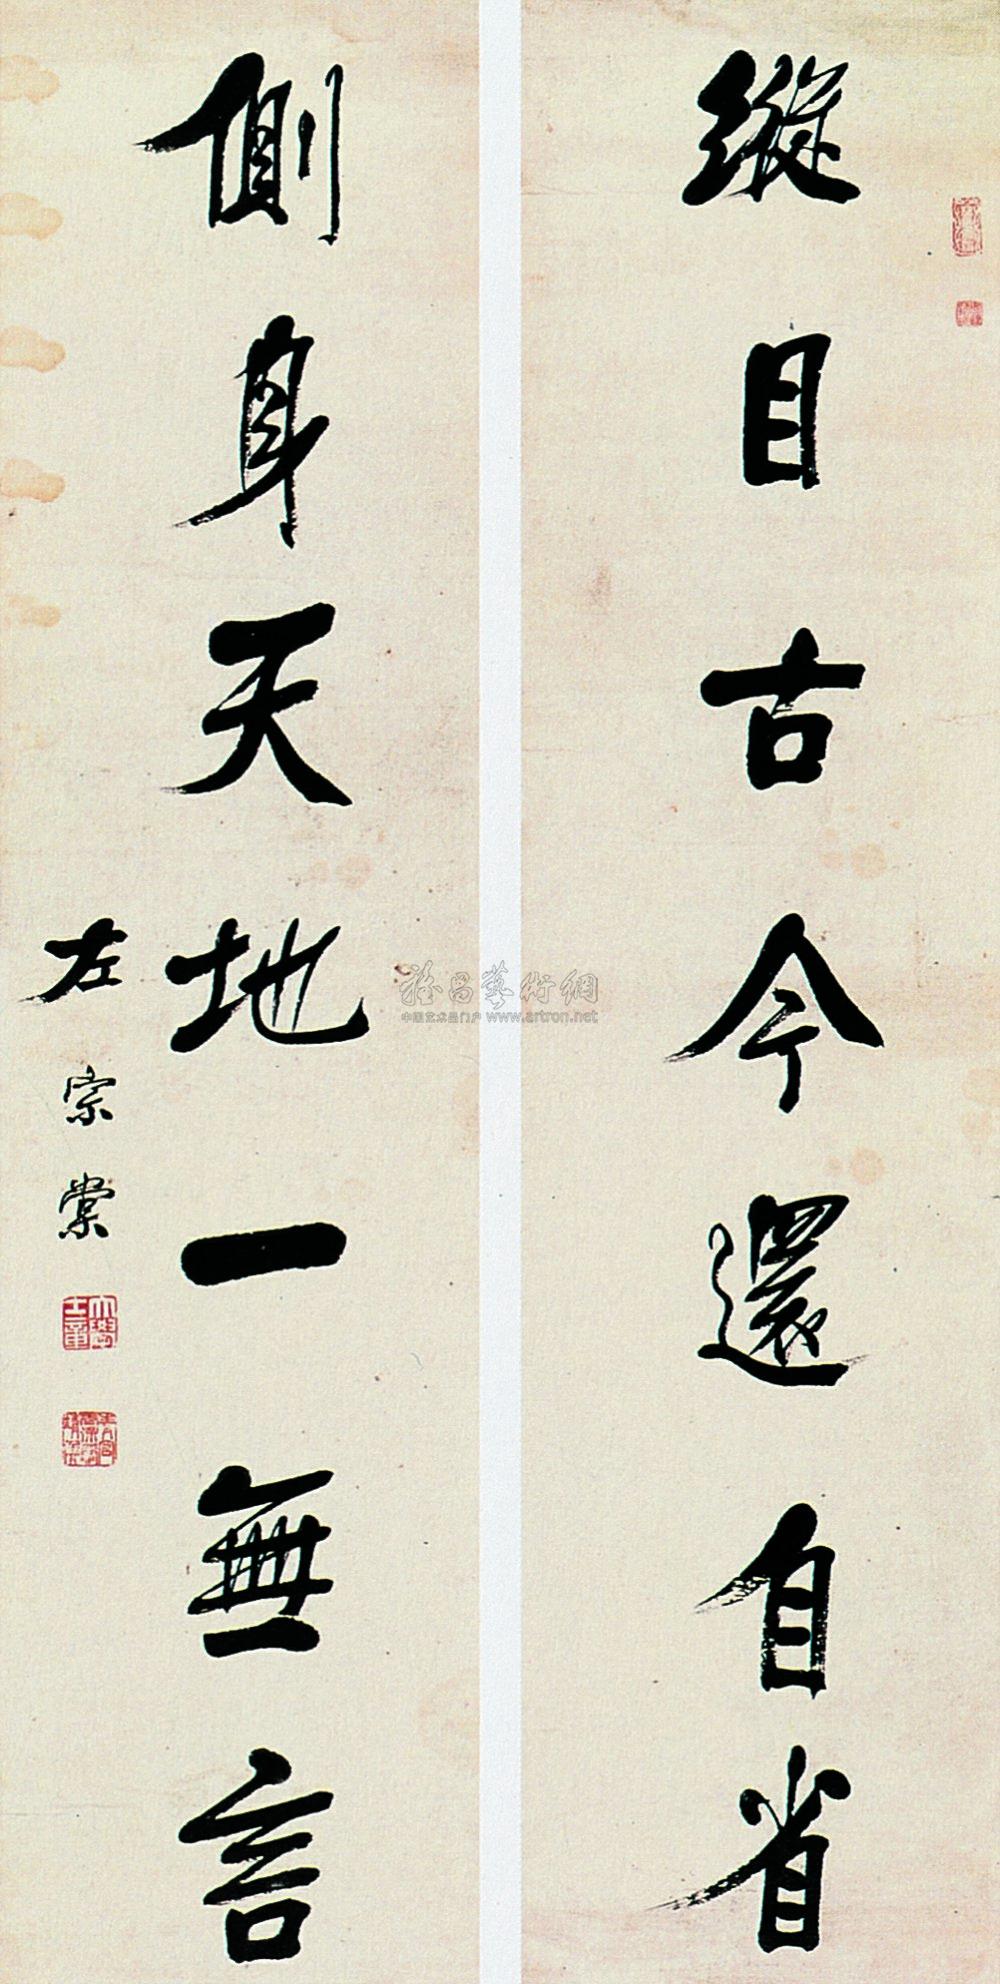 縱目古今還自省
側身天地一無言
左宗棠
雅昌藝術網
中国艺术品门户 www.artron.net